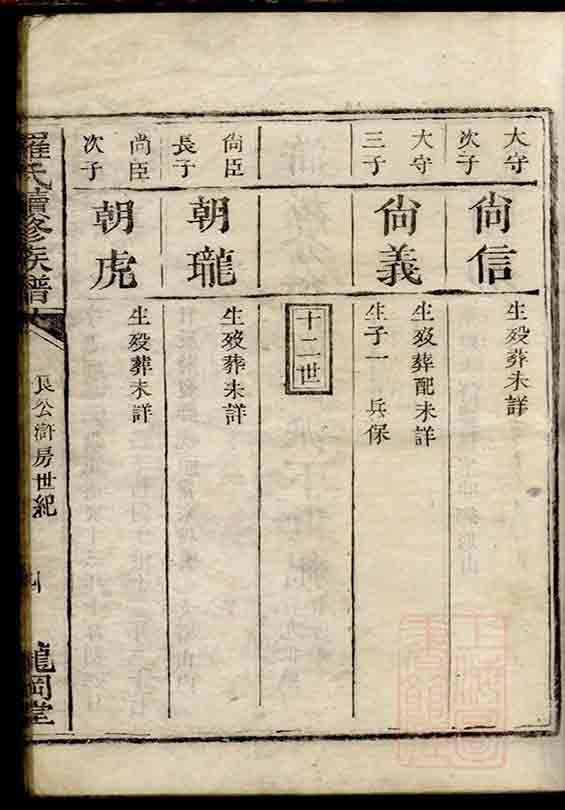 大守
次子
尙信
生歿葬未詳
大守
三子
尙義
生歿葬配未詳
生子一 兵保
十二世
尙臣
長子
朝瓏
生歿葬未詳
尙臣
次子
朝虎
生歿葬未詳
羅氏續修族譜
良公滸房世紀
龍岡堂